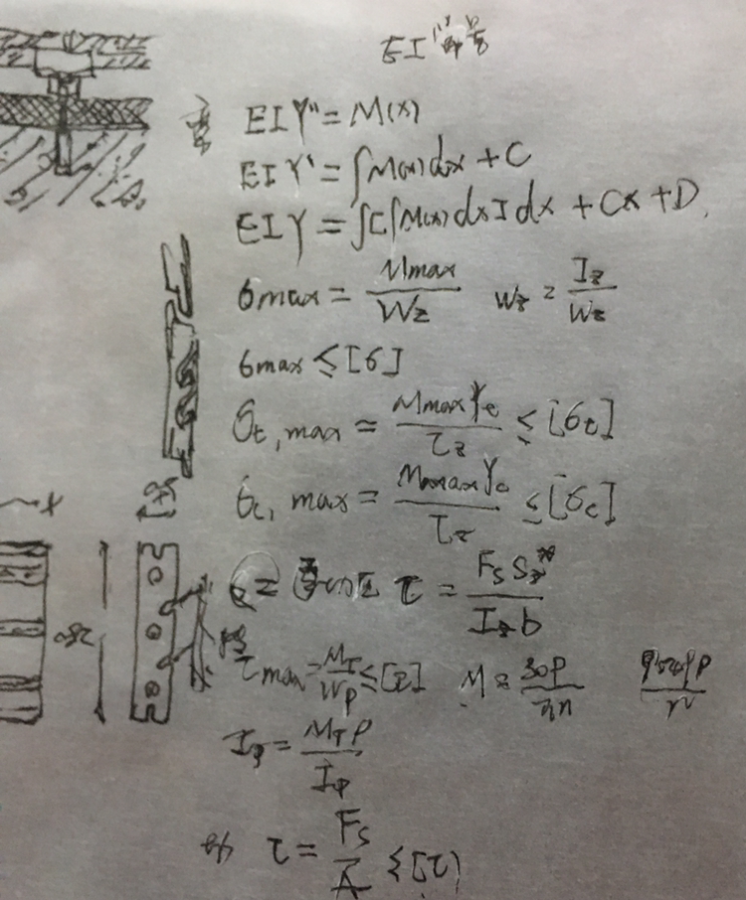 EI
EIY" = M(x)
EIY' = ∫M(x)dx + C
EIY = ∫[∫M(x)dx]dx + Cx + D.
σmax = Mmax/Wz   Wz = Iz/Wz
σmax ≤ [σ]
σt,max = MmaxYt/Iz ≤ [σt]
σc,max = MmaxYc/Iz ≤ [σc]
τ = FsSz*/Izb
τmax = MT/Wp ≤ [τ]   M = 30P/πn
= MTρ/Iρ
τ = Fs/A ≤ [τ]